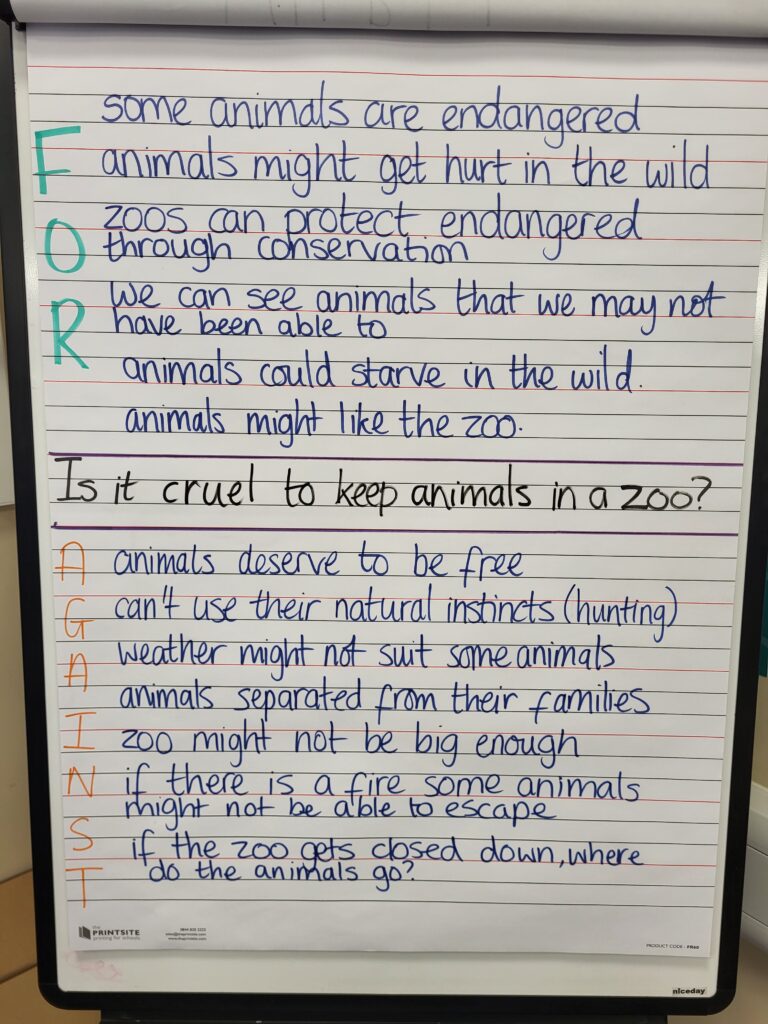 some animals are endangered
animals might get hurt in the wild
zoos can protect endangered
through conservation
we can see animals that we may not
have been able to
animals could starve in the wild.
animals might like the zoo.
FOR
Is it cruel to keep animals in a zoo?
animals deserve to be free
can't use their natural instincts (hunting)
weather might not suit some animals
animals separated from their families
zoo might not be big enough
if there is a fire some animals
might not be able to escape
if the zoo gets closed down, where
do the animals go?
AGAINST
the
PRINTSITE
printing for schools
PRODUCT CODE - FR60
niceday